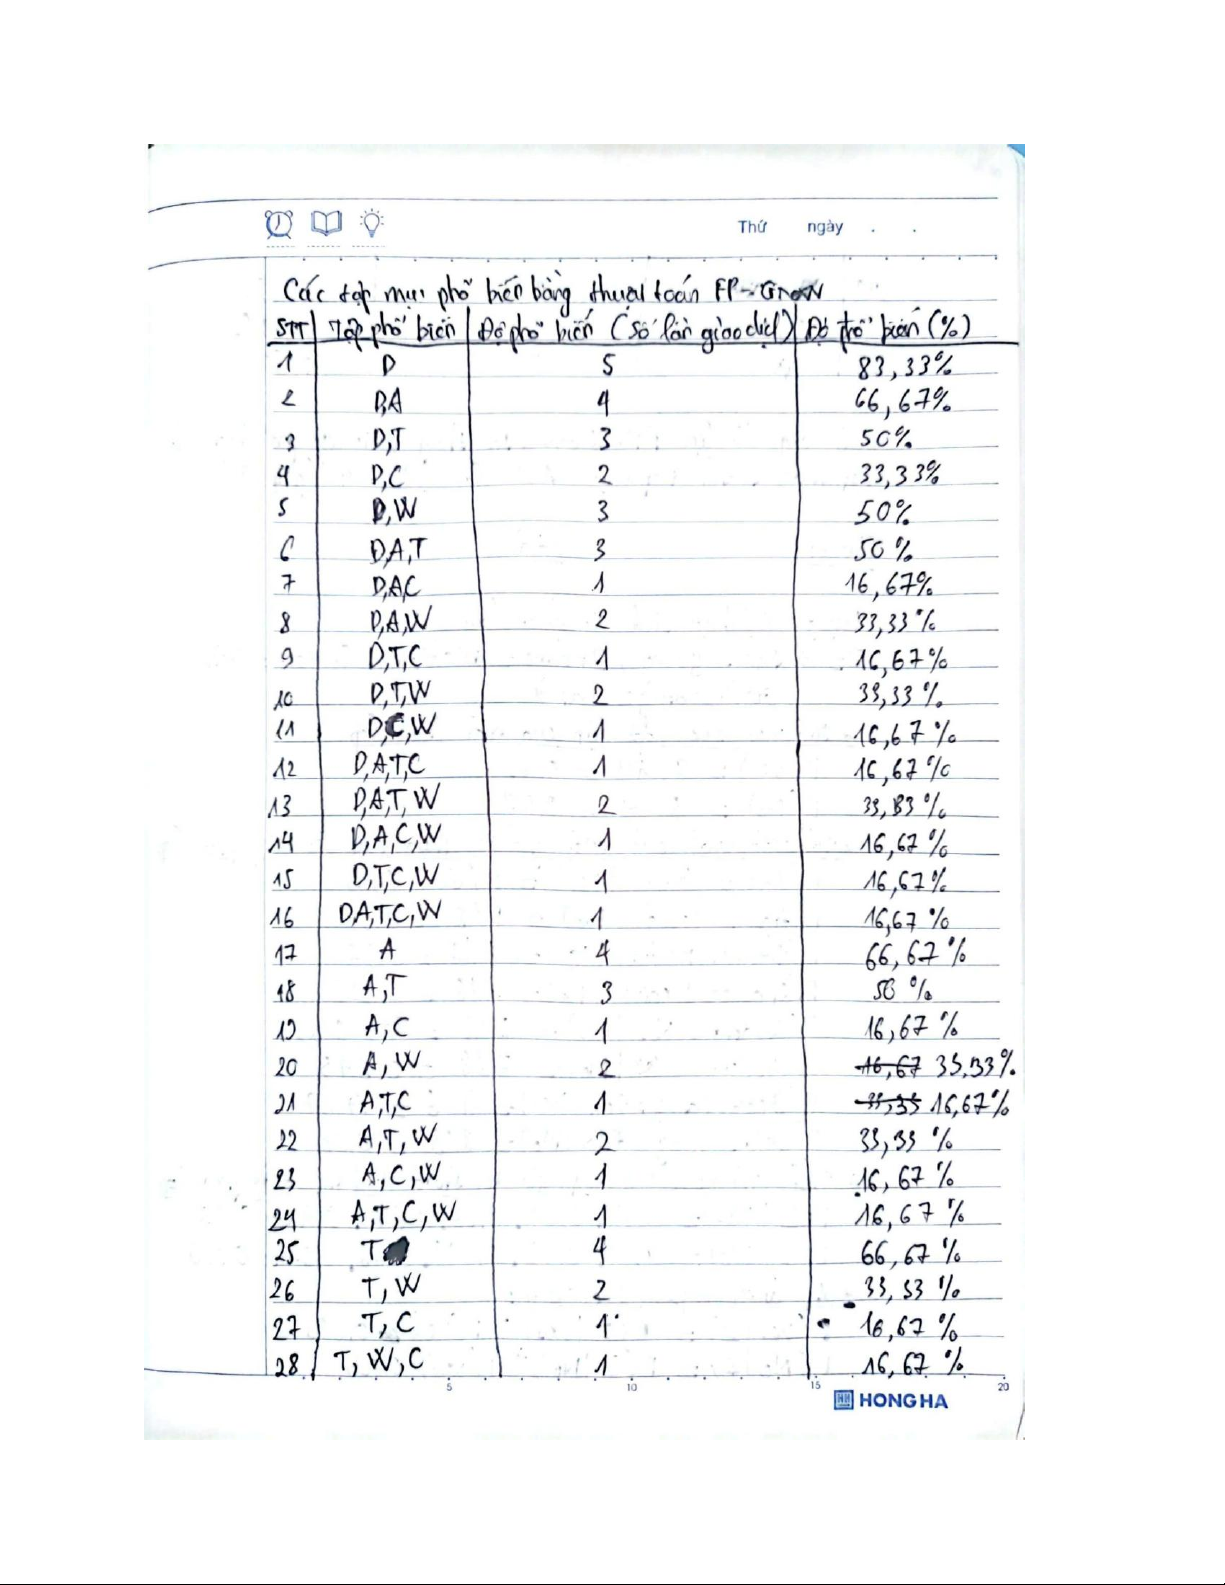 Thứ ngày . .
Các tập mục phổ biến bằng thuật toán FP-GroW
STT Tập phổ biến Độ phổ biến (Số lần giao dịch) Độ phổ biến (%)
1 D 5 83,33%
2 D,A 4 66,67%
3 D,T 3 50%
4 D,C 2 33,33%
5 D,W 3 50%
6 D,A,T 3 50%
7 D,A,C 1 16,67%
8 D,A,W 2 33,33%
9 D,T,C 1 16,67%
10 D,T,W 2 33,33%
11 D,C,W 1 16,67%
12 D,A,T,C 1 16,67%
13 D,A,T,W 2 33,33%
14 D,A,C,W 1 16,67%
15 D,T,C,W 1 16,67%
16 D,A,T,C,W 1 16,67%
17 A 4 66,67%
18 A,T 3 50%
19 A,C 1 16,67%
20 A,W 2 16,67 33,33%
21 A,T,C 1 33,33 16,67%
22 A,T,W 2 33,33%
23 A,C,W 1 16,67%
24 A,T,C,W 1 16,67%
25 T 4 66,67%
26 T,W 2 33,33%
27 T,C 1 16,67%
28 T,W,C 1 16,67%
5 10 15 20
HONG HA